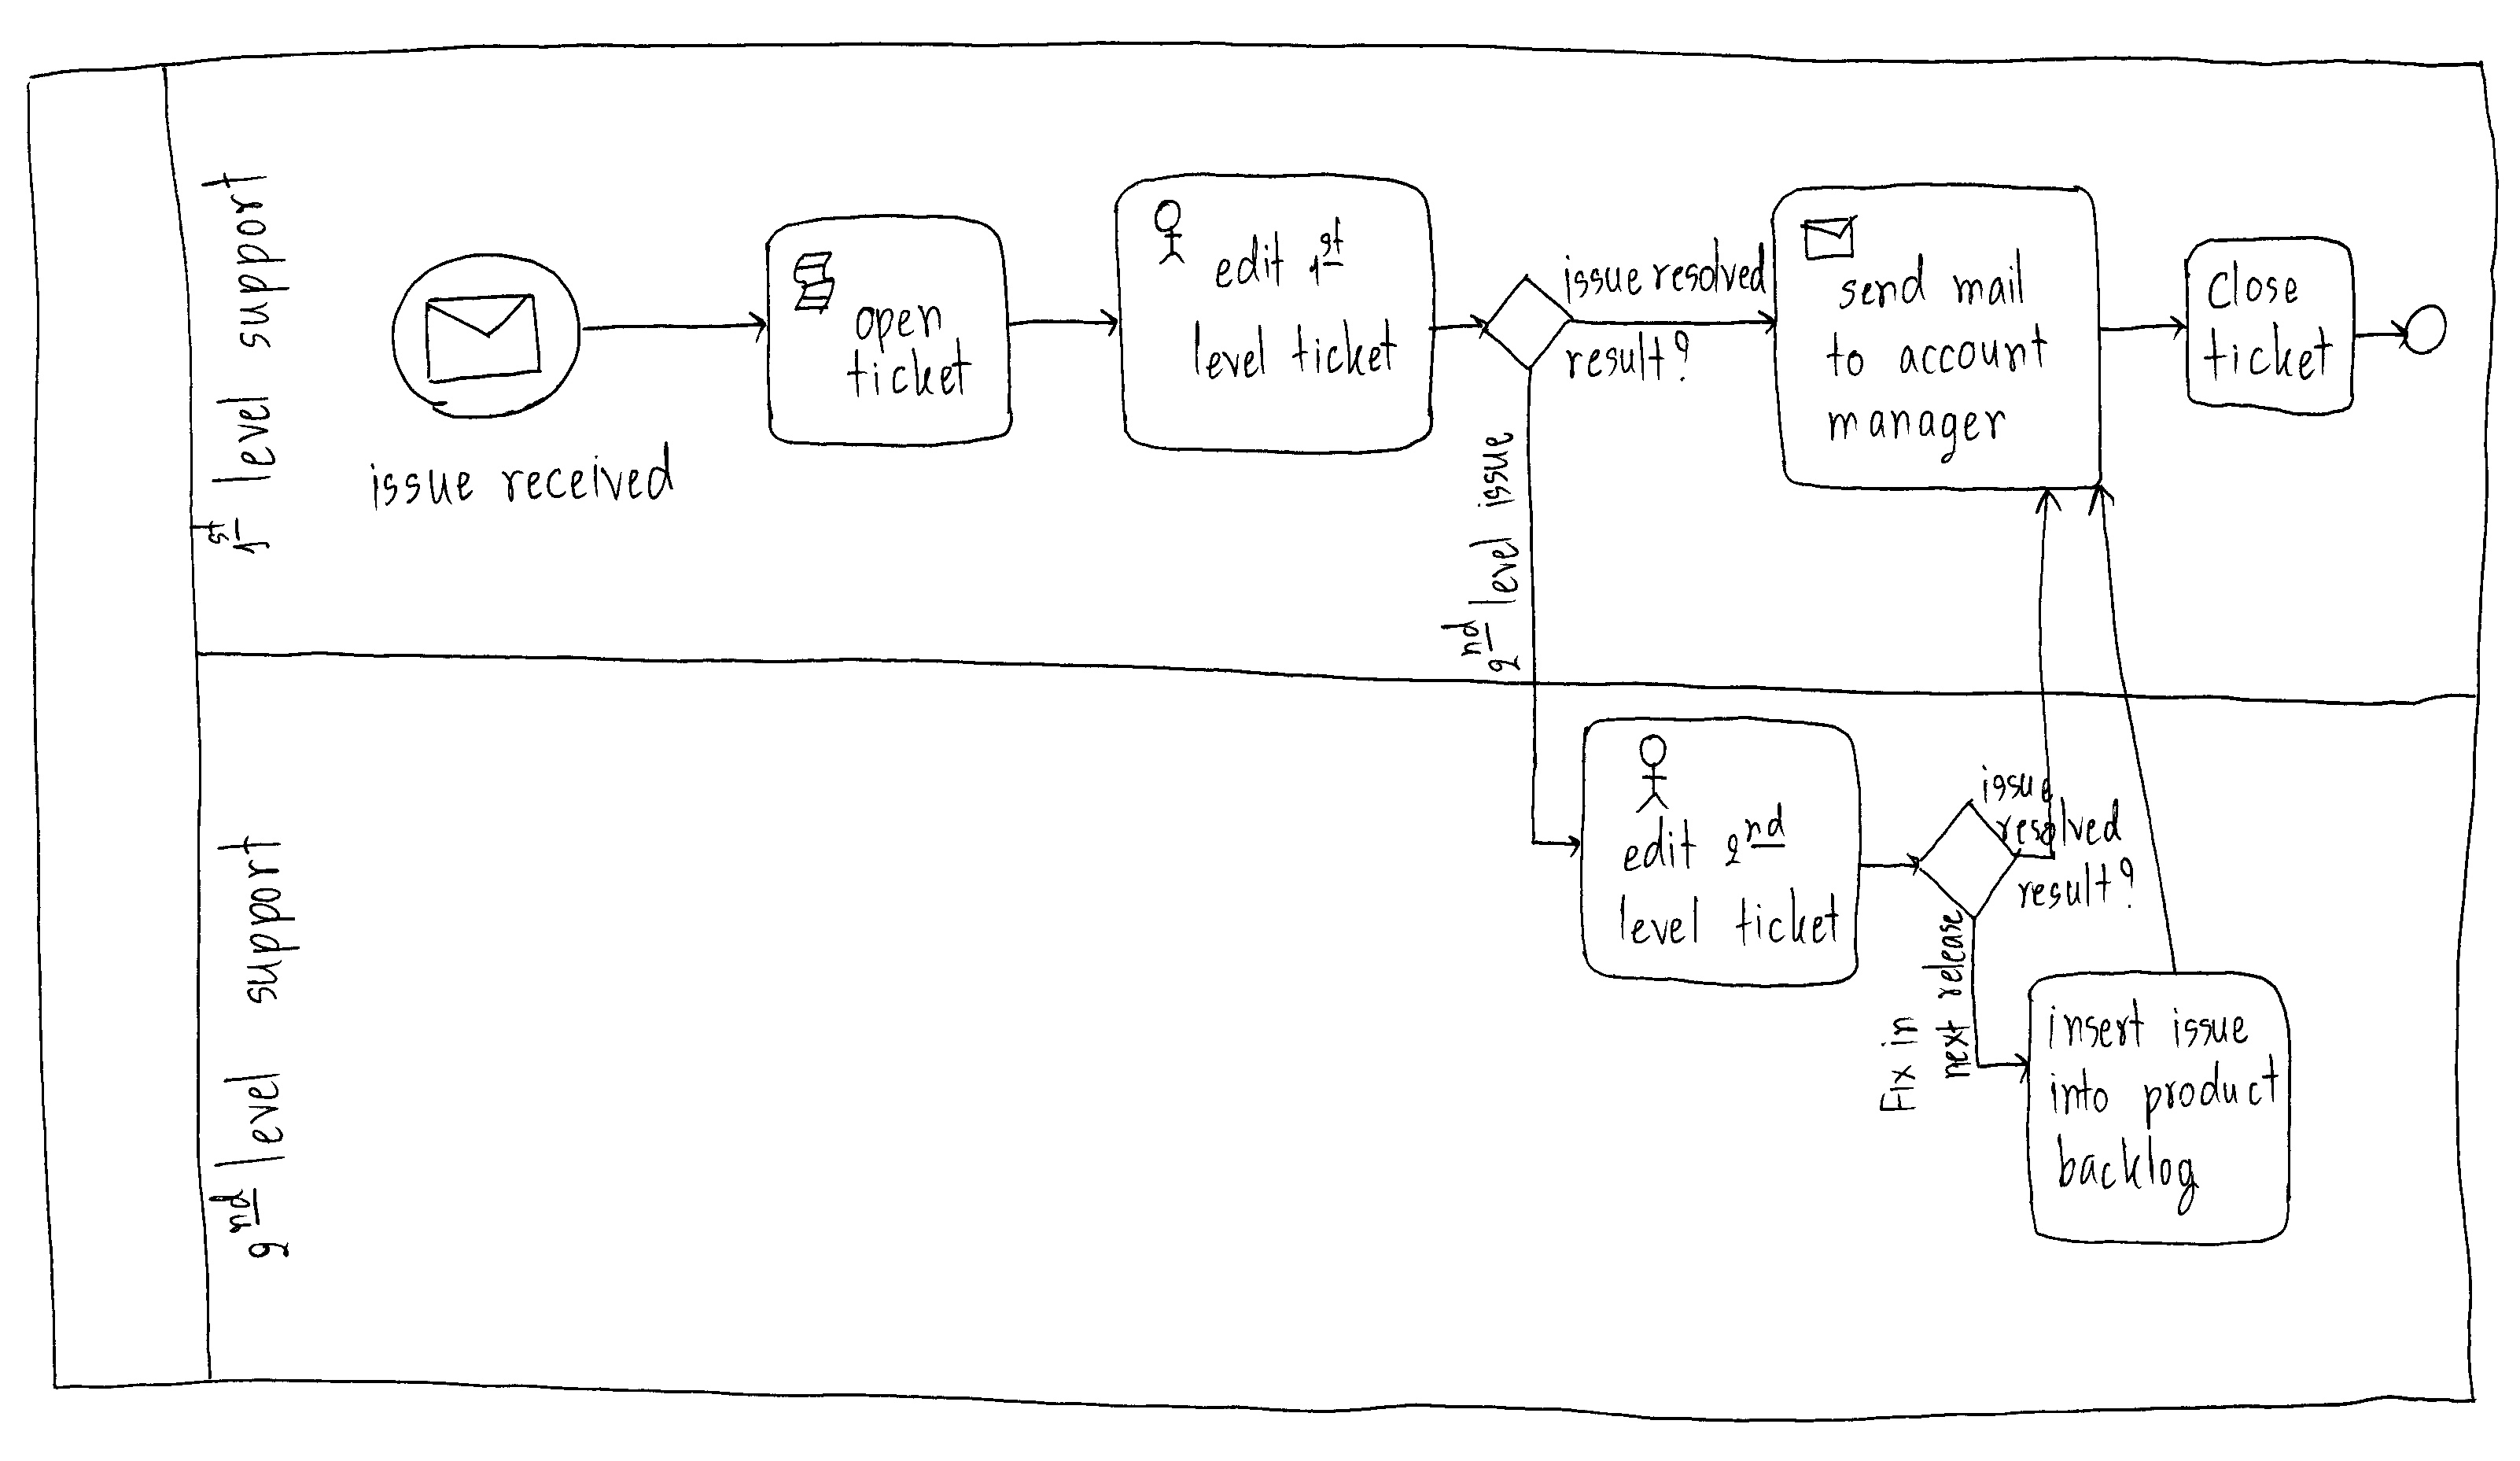 1st level support
issue received
open
ticket
edit 1st
level ticket
issue resolved
result?
2nd level issue
send mail
to account
manager
close
ticket
2nd level support
edit 2nd
level ticket
issue
resolved
result?
Fix in
next release
insert issue
into product
backlog